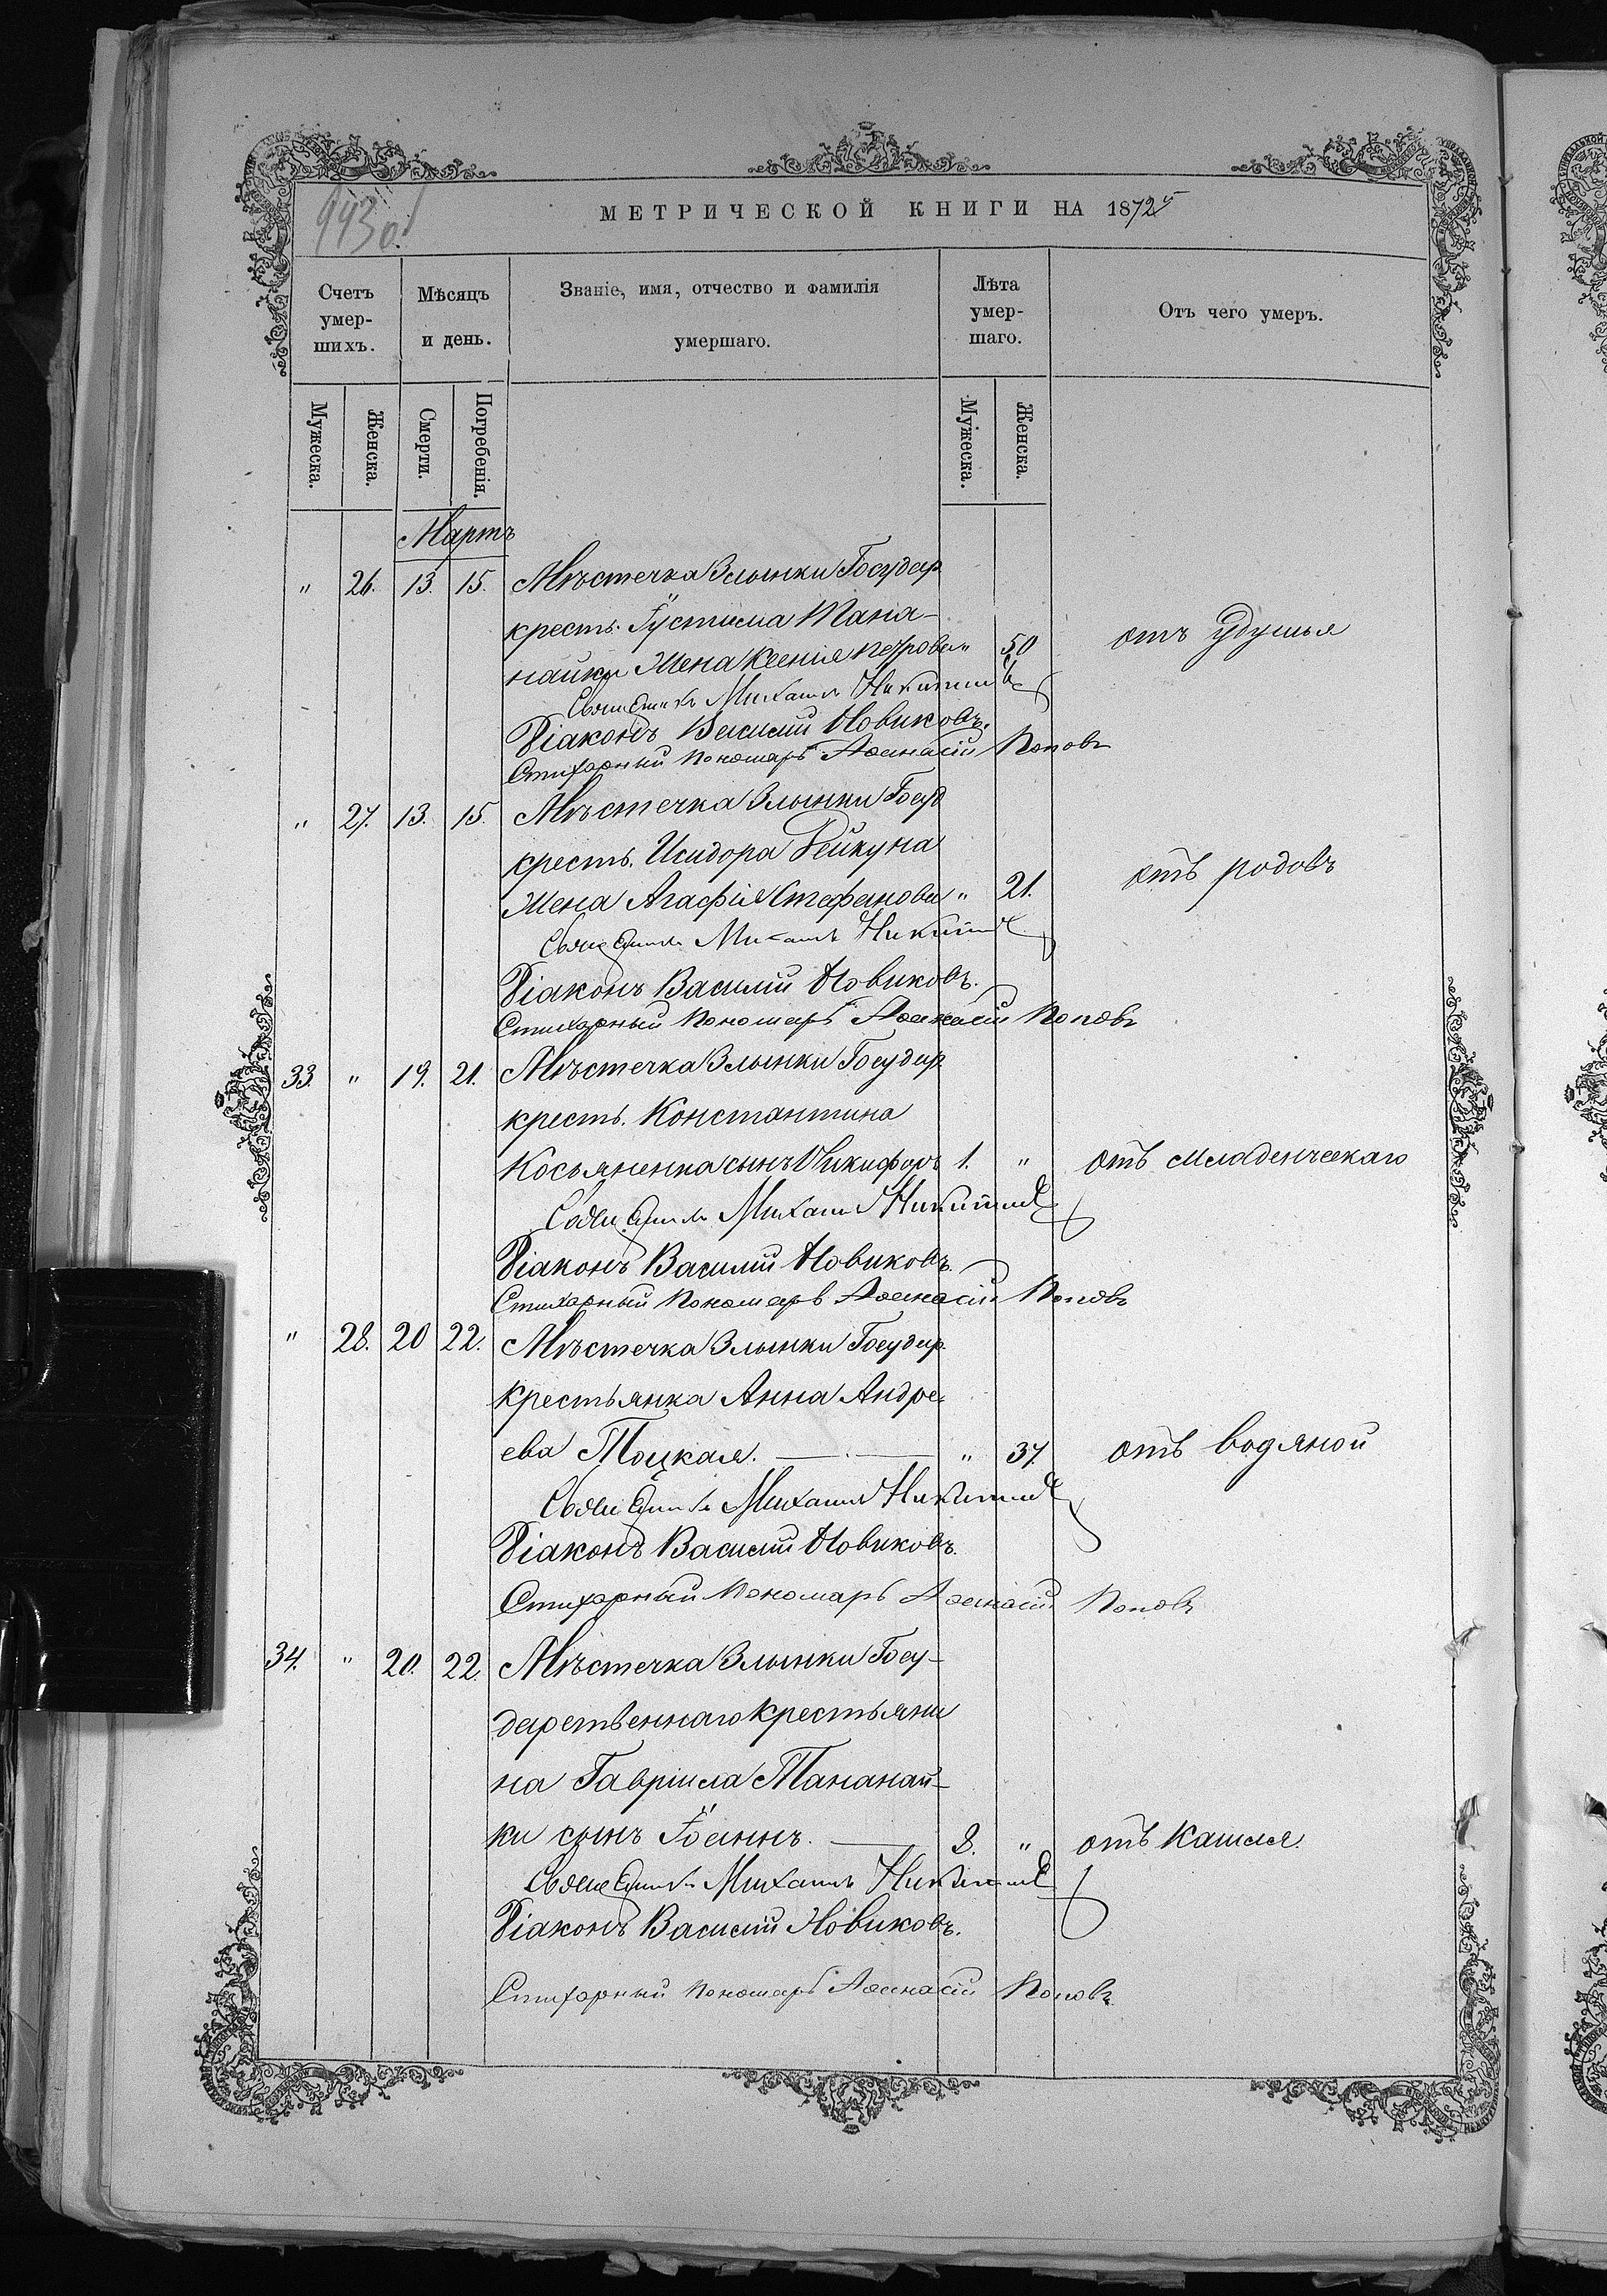 943 об.
МЕТРИЧЕСКОЙ КНИГИ НА 1872й
Счетъ умер-шихъ.
Мѣсяцъ и день.
Званіе, имя, отчество и фамилія умершаго.
Лѣта умер-шаго.
Отъ чего умеръ.
Мужеска.
Женска.
Смерти.
Погребенія.
Мужеска.
Женска.
Мартъ
" 26. 13. 15. Мѣстечка Злынки Государ
крестъ. Іустина Тана-
найки жена Ксенія Петрова " 50 отъ удушья
Священникъ Михаилъ Никитинъ
Діаконъ Василій Новиковъ.
Стихарный Пономарь Аѳанасій Поповъ
" 27. 13. 15. Мѣстечка Злынки Госуд
крестъ. Исидора Рейкуна
жена Агафія Стефанова " 21. отъ родовъ
Священникъ Михаилъ Никитинъ
Діаконъ Василій Новиковъ.
Стихарный Пономарь Аѳанасій Поповъ
33. " 19. 21. Мѣстечка Злынки Государ
крестъ. Константина
Косьяненка сынъ Никифоръ 1. " отъ младенческаго
Священникъ Михаилъ Никитинъ
Діаконъ Василій Новиковъ.
Стихарный Пономарь Аѳанасій Поповъ
" 28. 20 22. Мѣстечка Злынки Государ.
крестьянка Анна Андре-
ева Тоцкая. " 37. отъ водяной
Священникъ Михаилъ Никитинъ
Діаконъ Василій Новиковъ.
Стихарный Пономарь Аѳанасій Поповъ
34. " 20. 22. Мѣстечка Злынки Госу-
дарственнаго крестьяни
на Гавріила Тананай-
ки сынъ Іоаннъ. 8. " отъ кашля.
Священникъ Михаилъ Никитинъ
Діаконъ Василій Новиковъ.
Стихарный Пономарь Аѳанасій Поповъ